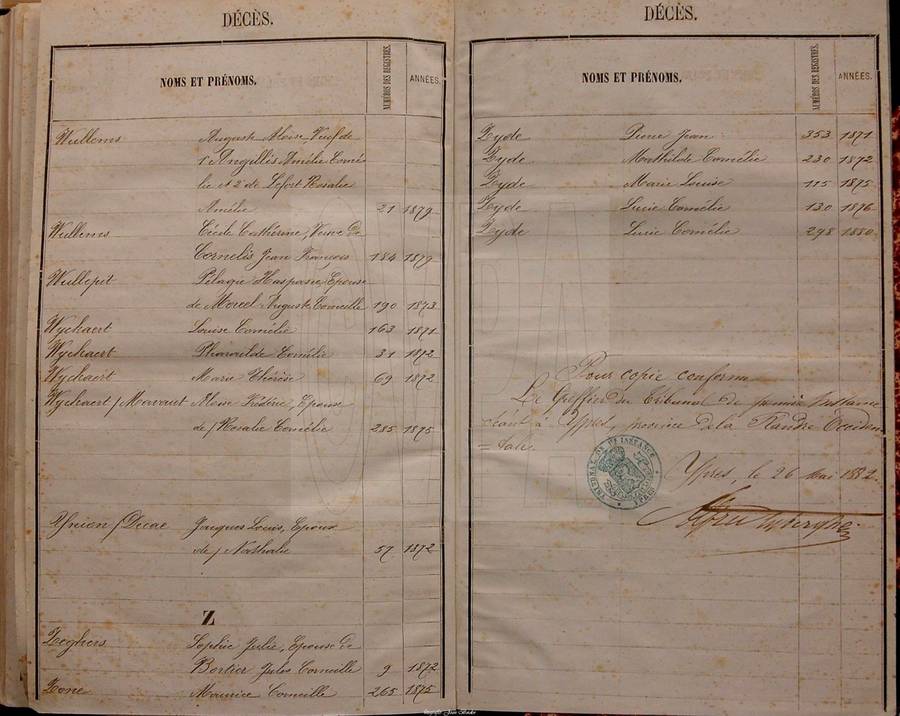 DÉCÈS.
NOMS ET PRÉNOMS.
NUMÉROS DES REGISTRES.
ANNÉES.
Wullems Auguste Aloise, Veuf de
1° Angillis Amélie Corné
lie et 2° de Lefort Rosalie
Amélie 21 1879
Wullems Cécile Cathérine, Veuve de
Cornelis Jean François 184 1879
Wullepit Pélagie Haspasie, Epouse
de Morcel Auguste Corneille 190 1873
Wyckaert Louise Cornélie 163 1871
Wyckaert Pharaïlde Cornélie 31 1872
Wyckaert Marie Thérèse 69 1872
Wyckaert / Mervaut Aloïse Frédéric, Epouse
de / Rosalie Cornélie 285 1875
Ynion / Decae Jacques Louis, Epoux
de / Nathalie 57 1872
Z
Zeghers Sophie Julie, Epouse de
Bortier Jules Corneille 9 1872
Zone Maurice Corneille 265 1875
DÉCÈS.
NOMS ET PRÉNOMS.
NUMÉROS DES REGISTRES.
ANNÉES.
Zyde Pierre Jean 353 1871
Zyde Mathilde Cornélie 230 1872
Zyde Marie Louise 115 1875
Zyde Lucie Cornélie 130 1876
Zyde Lucie Cornélie 298 1880
Pour copie conforme
Le Greffier du Tribunal de première Instance
séant à Ypres, province de la Flandre Occiden
=tale.
TRIBUNAL DE 1RE INSTANCE
YPRES
Ypres, le 26 Mai 1882.